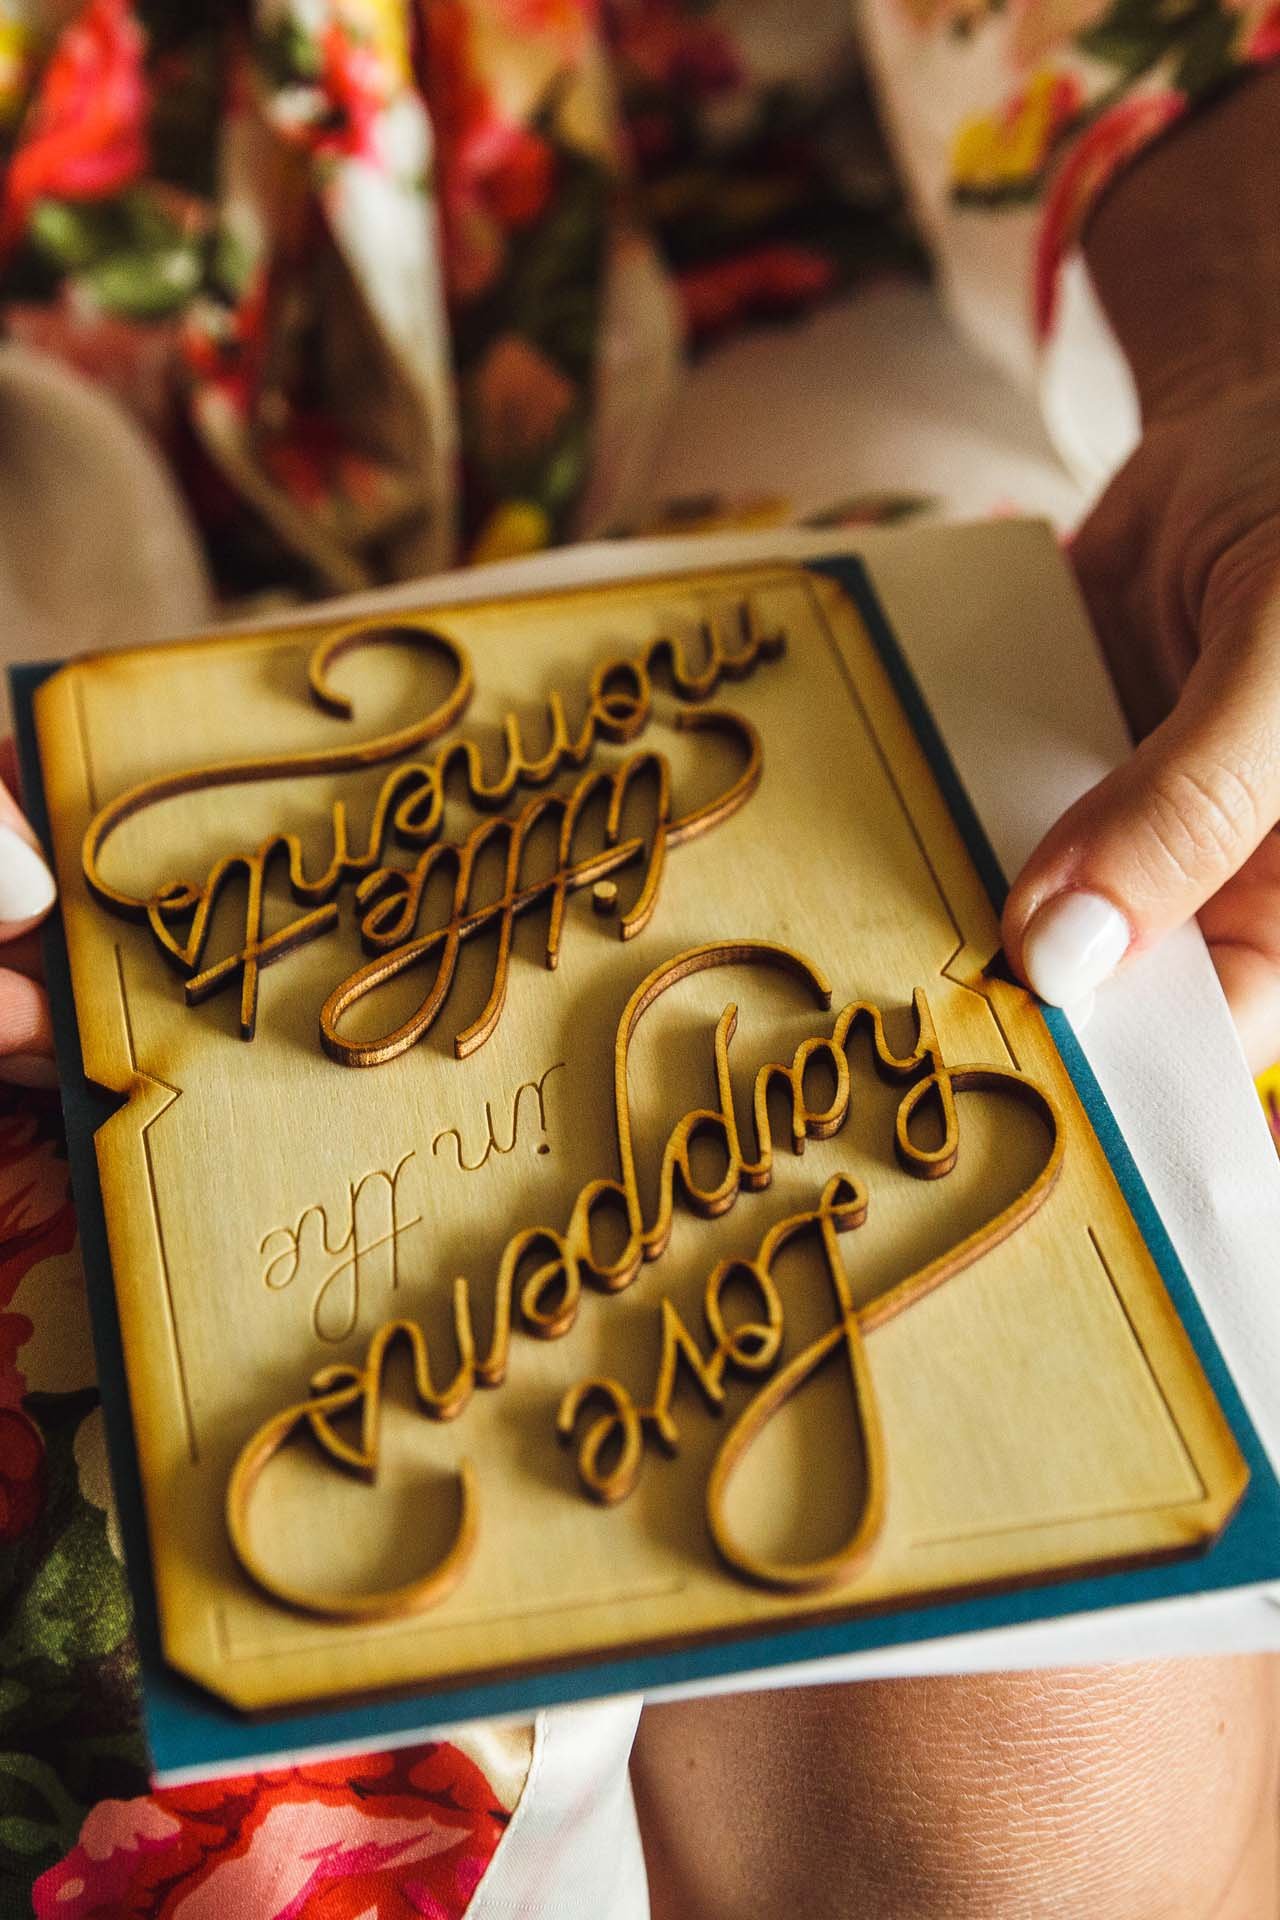 Love
happens
in the
little
moments